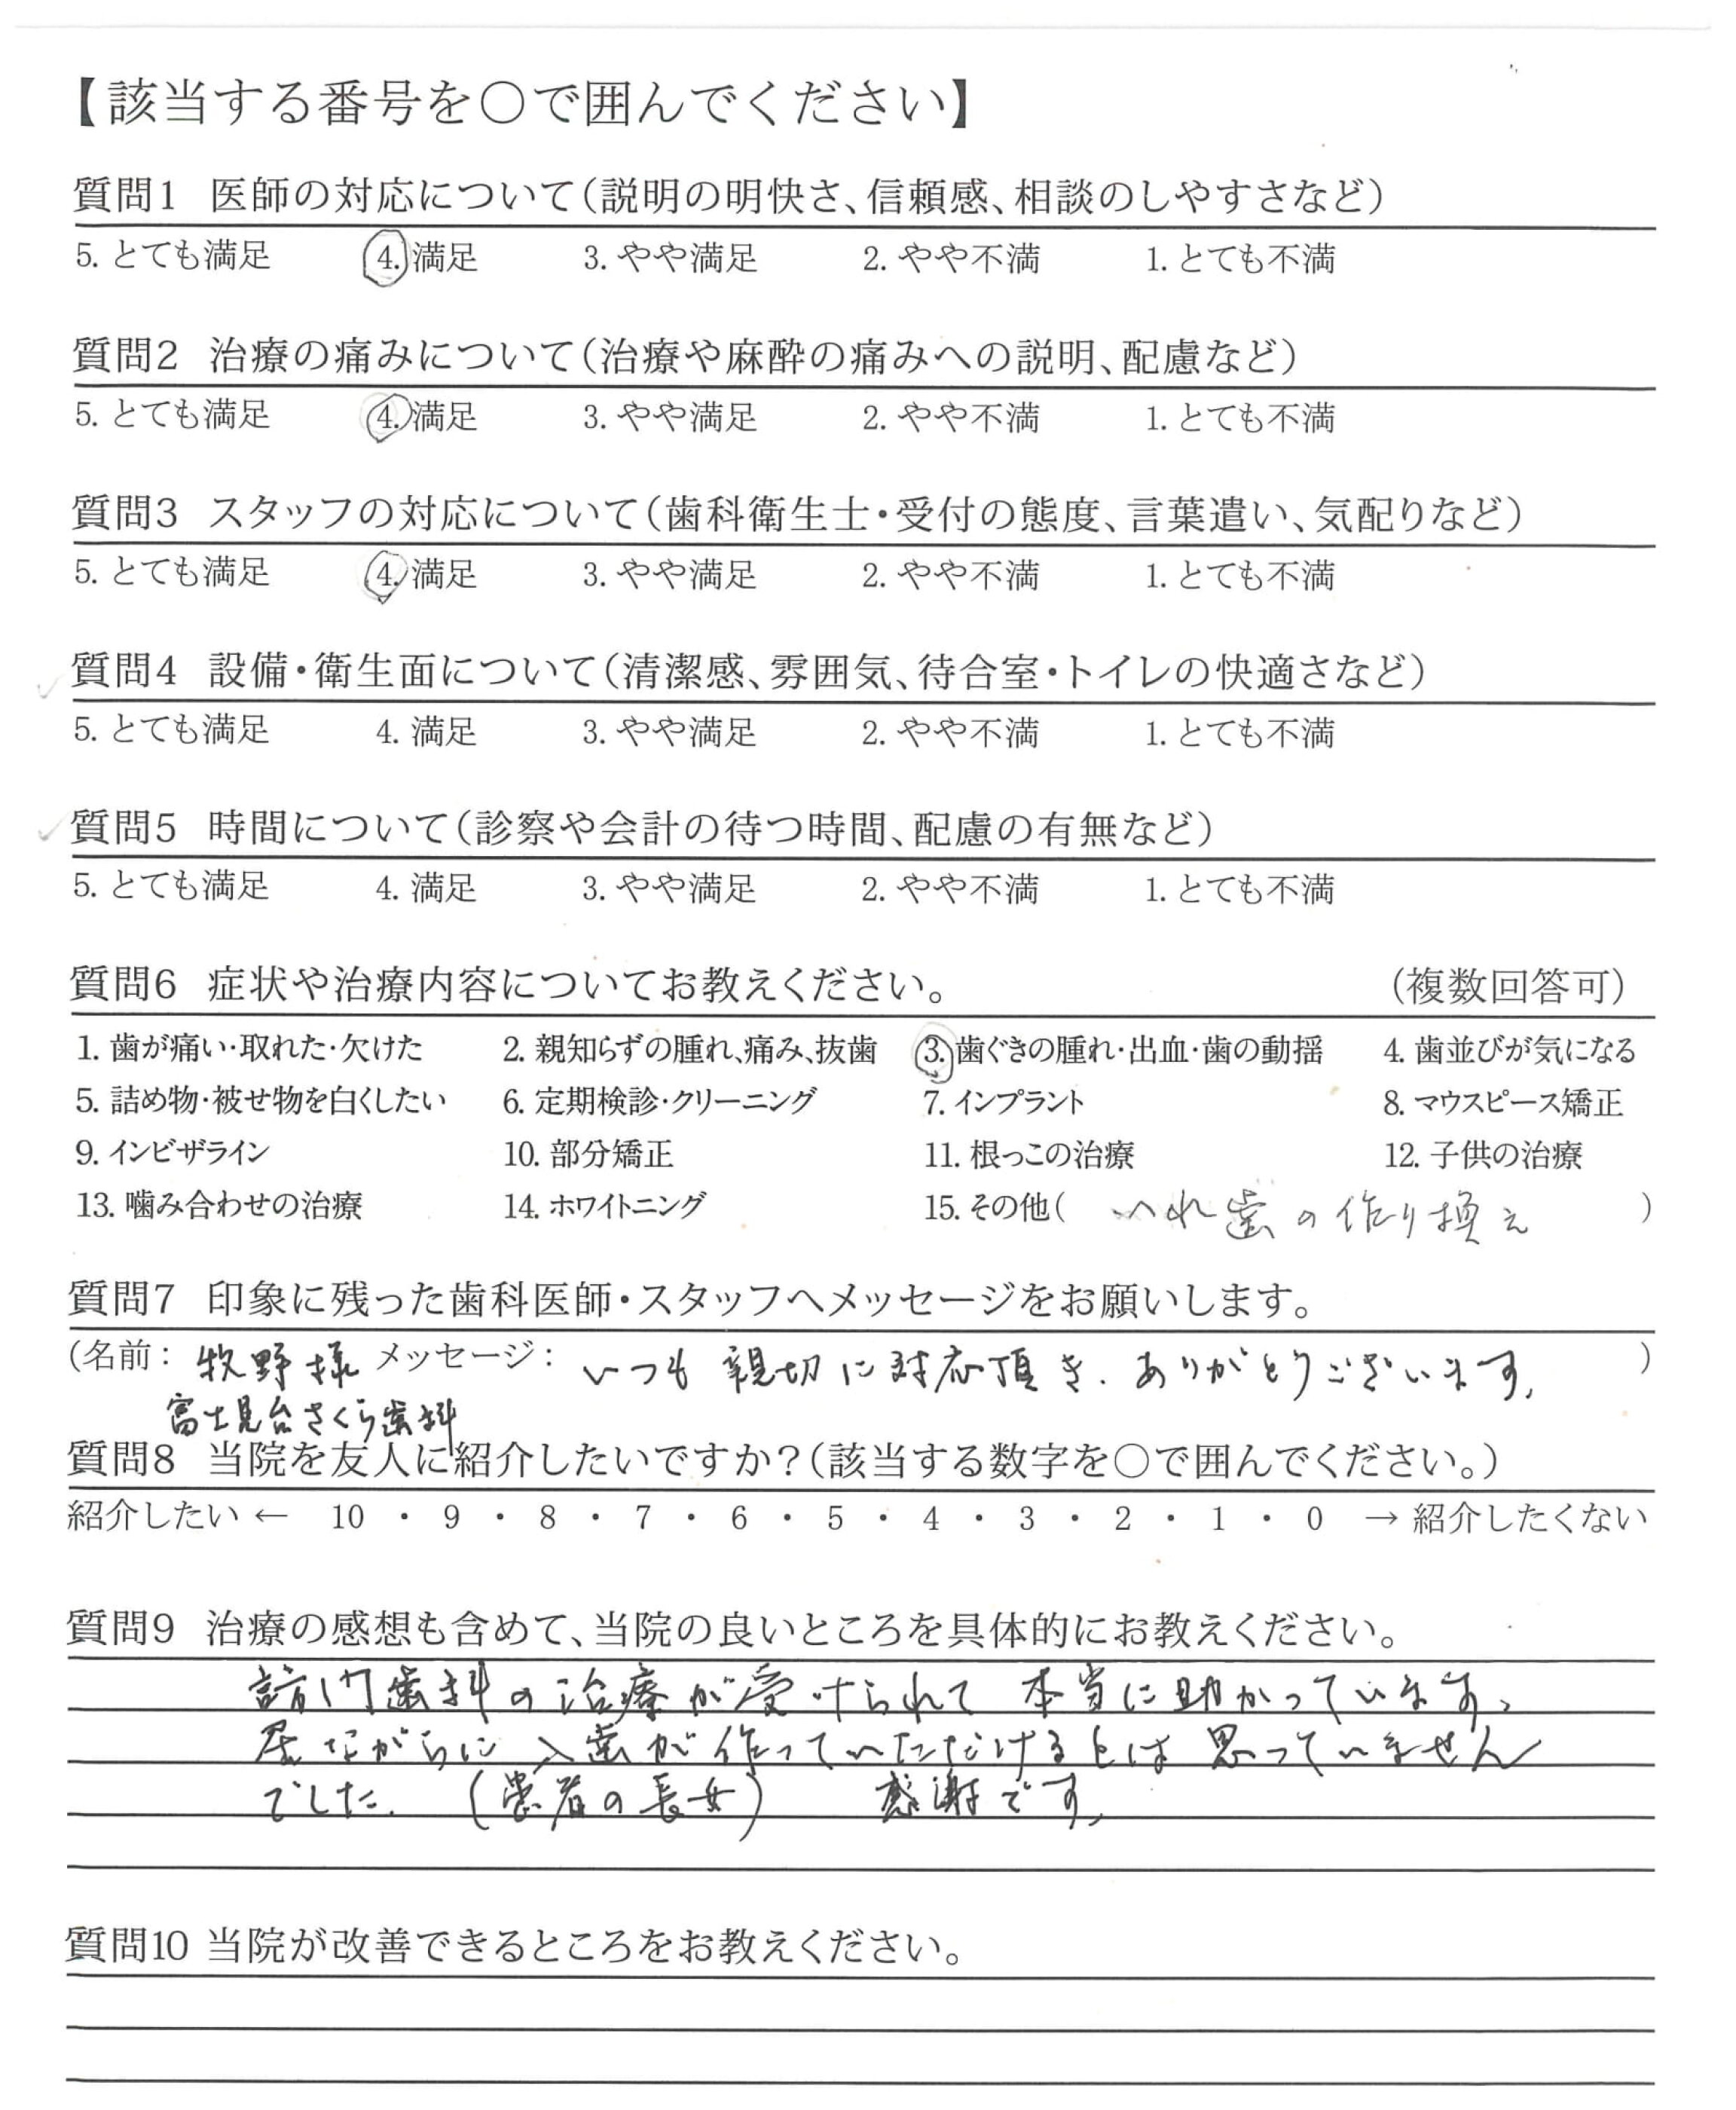 【該当する番号を○で囲んでください】
質問1 医師の対応について(説明の明快さ、信頼感、相談のしやすさなど)
5. とても満足 4. 満足 3. やや満足 2. やや不満 1. とても不満
質問2 治療の痛みについて(治療や麻酔の痛みへの説明、配慮など)
5. とても満足 4. 満足 3. やや満足 2. やや不満 1. とても不満
質問3 スタッフの対応について(歯科衛生士・受付の態度、言葉遣い、気配りなど)
5. とても満足 4. 満足 3. やや満足 2. やや不満 1. とても不満
質問4 設備・衛生面について(清潔感、雰囲気、待合室・トイレの快適さなど)
5. とても満足 4. 満足 3. やや満足 2. やや不満 1. とても不満
質問5 時間について(診察や会計の待つ時間、配慮の有無など)
5. とても満足 4. 満足 3. やや満足 2. やや不満 1. とても不満
質問6 症状や治療内容についてお教えください。 (複数回答可)
1. 歯が痛い・取れた・欠けた 2. 親知らずの腫れ、痛み、抜歯 3. 歯ぐきの腫れ・出血・歯の動揺 4. 歯並びが気になる
5. 詰め物・被せ物を白くしたい 6. 定期検診・クリーニング 7. インプラント 8. マウスピース矯正
9. インビザライン 10. 部分矯正 11. 根っこの治療 12. 子供の治療
13. 噛み合わせの治療 14. ホワイトニング 15. その他( いれ歯の作り換え )
質問7 印象に残った歯科医師・スタッフへメッセージをお願いします。
(名前: 牧野様 メッセージ: いつも親切に対応頂き、ありがとうございます。 )
富士見台さくら歯科
質問8 当院を友人に紹介したいですか?(該当する数字を○で囲んでください。)
紹介したい ← 10 ・ 9 ・ 8 ・ 7 ・ 6 ・ 5 ・ 4 ・ 3 ・ 2 ・ 1 ・ 0 → 紹介したくない
質問9 治療の感想も含めて、当院の良いところを具体的にお教えください。
訪問歯科の治療が受けられて本当に助かっています。
居ながらに入歯が作っていただけるとは思っていません
でした。(患者の長女) 感謝です。
質問10 当院が改善できるところをお教えください。